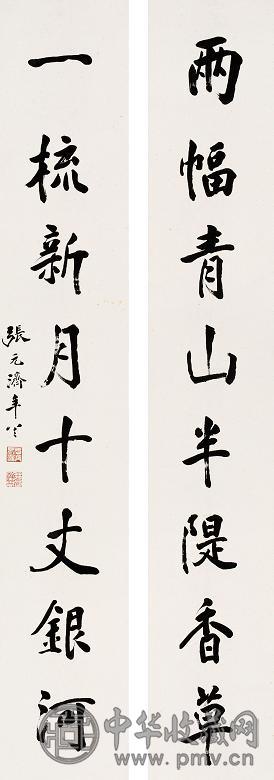 兩幅青山半隄香草
一梳新月十丈銀河
張元濟年八十
中华收藏网
www.pmv.cn